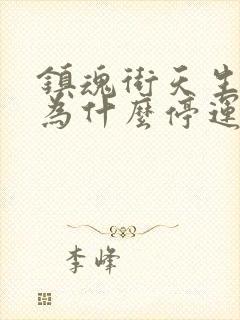 鎮魂街天生
為什麼停運
李峰